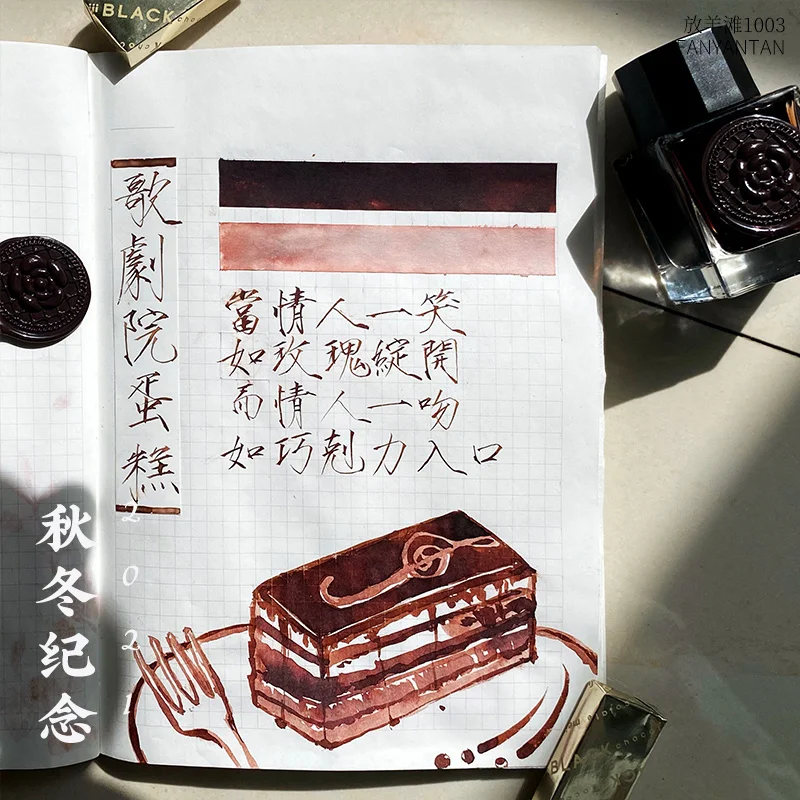 放羊滩1003
FANYANTAN
BLACK
歌劇院蛋糕
當情人一笑
如玫瑰綻開
而情人一吻
如巧剋力入口
秋冬纪念
2021
BLACK